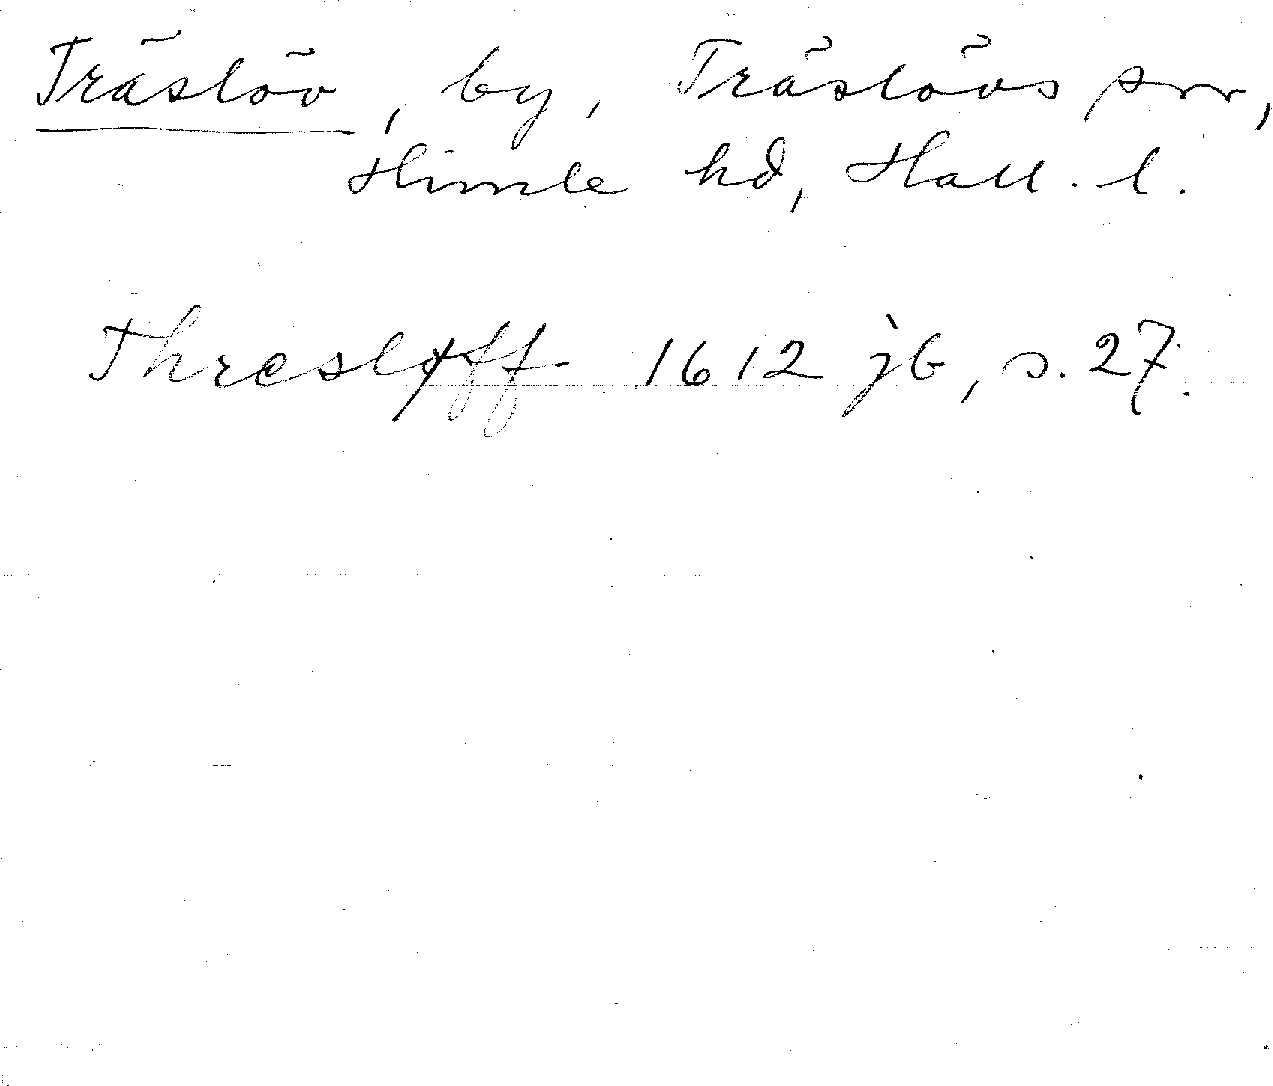 Träslöv, by, Träslövs sn,
Himle hd, Hall. l.
Thresløff 1612 jb, s. 27.